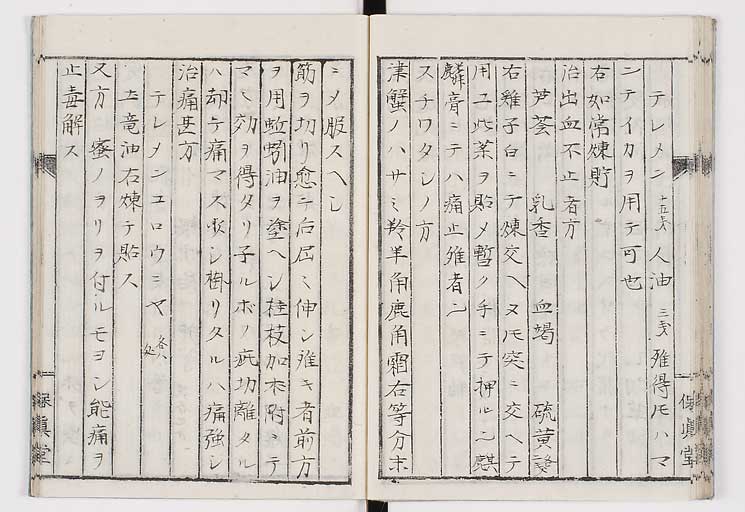 テレメン 十五戔 人油 三戔 雖得凡ハマ
ンテイカヲ用テ可也
右如常煉貯
治出血不止者方
芦薈 乳香 血竭 硫黄
右雞子白ニテ煉交ヘ又ハ突ニ交ヘテ
用ユ此薬ヲ貼メ暫ノ手ニテ押ルニ麒
麟膏ニテハ痛止雖者ニ
スチワタシノ方
津蟹ノハサミ羚羊角鹿角霜右等分末
ニメ服スヘシ
筋ヲ切リ愈テ后屈ミ伸シ雖キ者前方
ヲ用蚯蚓油ヲ塗ヘシ桂枝加朮附ニテ
マヽ効ヲ得タリ子ルボノ疵切離タル
ハ却テ痛マス少シ掛リタルハ痛強シ
治痛甚方
テレメンユロウミヤ 各
土竜油右煉テ貼ス
又方 蜜ノヲリヲ付ルモヨシ能痛ヲ
止毒解ス
保真堂
保真堂